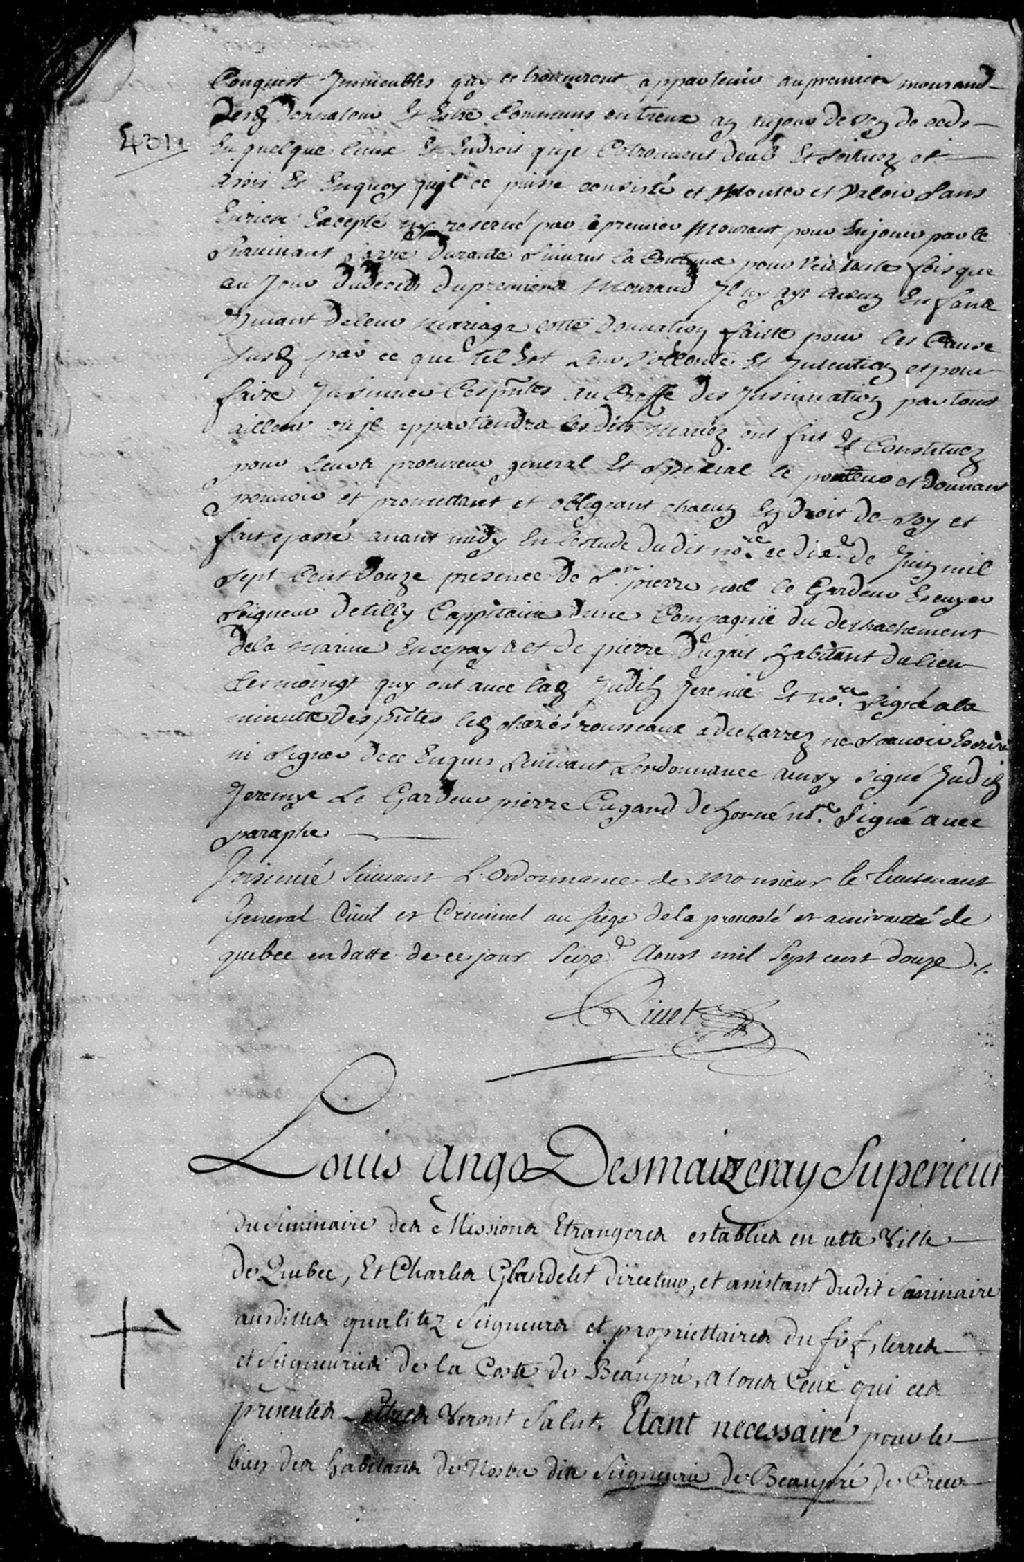 Conquest Immeubles quy ce trouveront appartenir au premier mourand
desd donnateur Et Estre Commune entreux au jour de son deceds
En quelque lieux Et Endroit quje Cetrouvent deub Et scituez et
assis Et Enquoy quil ce puisse consisté et monter et valoir sans
Enrien Excepté ny reservé par le premier Mourant pour Enjouir par le
survivant sa vie durante suivant la Coutume pourveu toute fois que
au Jour du deceds du premiere Mourand Il ny ayt aucun Enfant
vivant de leur mariage cette Donnation faitte pour les Cause
susd par ce que tel Est leur vollonté Et Intention et pour
faire Insinuer Ces pntes au Greffe des Insinuation partout
ailleur ou jl appartiendra les dits mariez ont fait Et Constituez
pour leur procureur general Et special le porteur et Donnant
pouvoir et promettant et obligeant chacun En droit de soy et
fait et passé avant midy En lestude du dit nore ce dixe de Juin mil
sept Cent Douze presence De sr pierre noel le Gardeur Escuyer
seigneur de tilly Cappitaine Dune Compagnie du destachement
dela marine En ce pays et de pierre Dugas habitant du lieu
tesmoings quy ont avec lad Judith Jeremie Et nore signé ala
minutte des pntes led charles rousseaux a declarrez ne scavoir Ecrire
ni signer de ce Enquis suivant Lordonnance ainsy signé Judith
Jeremye Le Gardeur pierre Dugand de horné nore Signé avec
paraphe
Insinué suivant L'ordonnance de Monsieur le lieutenant
General Civil et Criminel au siege de la prevosté et amirauté de
quebec en datte de ce jour seize Aoust mil sept cent douze ./.
Rivet
5431
Louis Ango Desmaizeray Superieur
du Seminaire des Missions Etrangeres establies en cette Ville
de Quebec, Et Charles Glandelet directeur, et assistant dudit Seminaire
ausdittes qualitez Seigneurs et propriettaires du fief, terres
et Seigneuries de la Coste de Beaupré, a tous Ceux qui ces
presentes Lettres Verront Salut. Etant necessaire pour le
bien des habitans de Nostre ditte Seigneurie de Beaupré de Creer